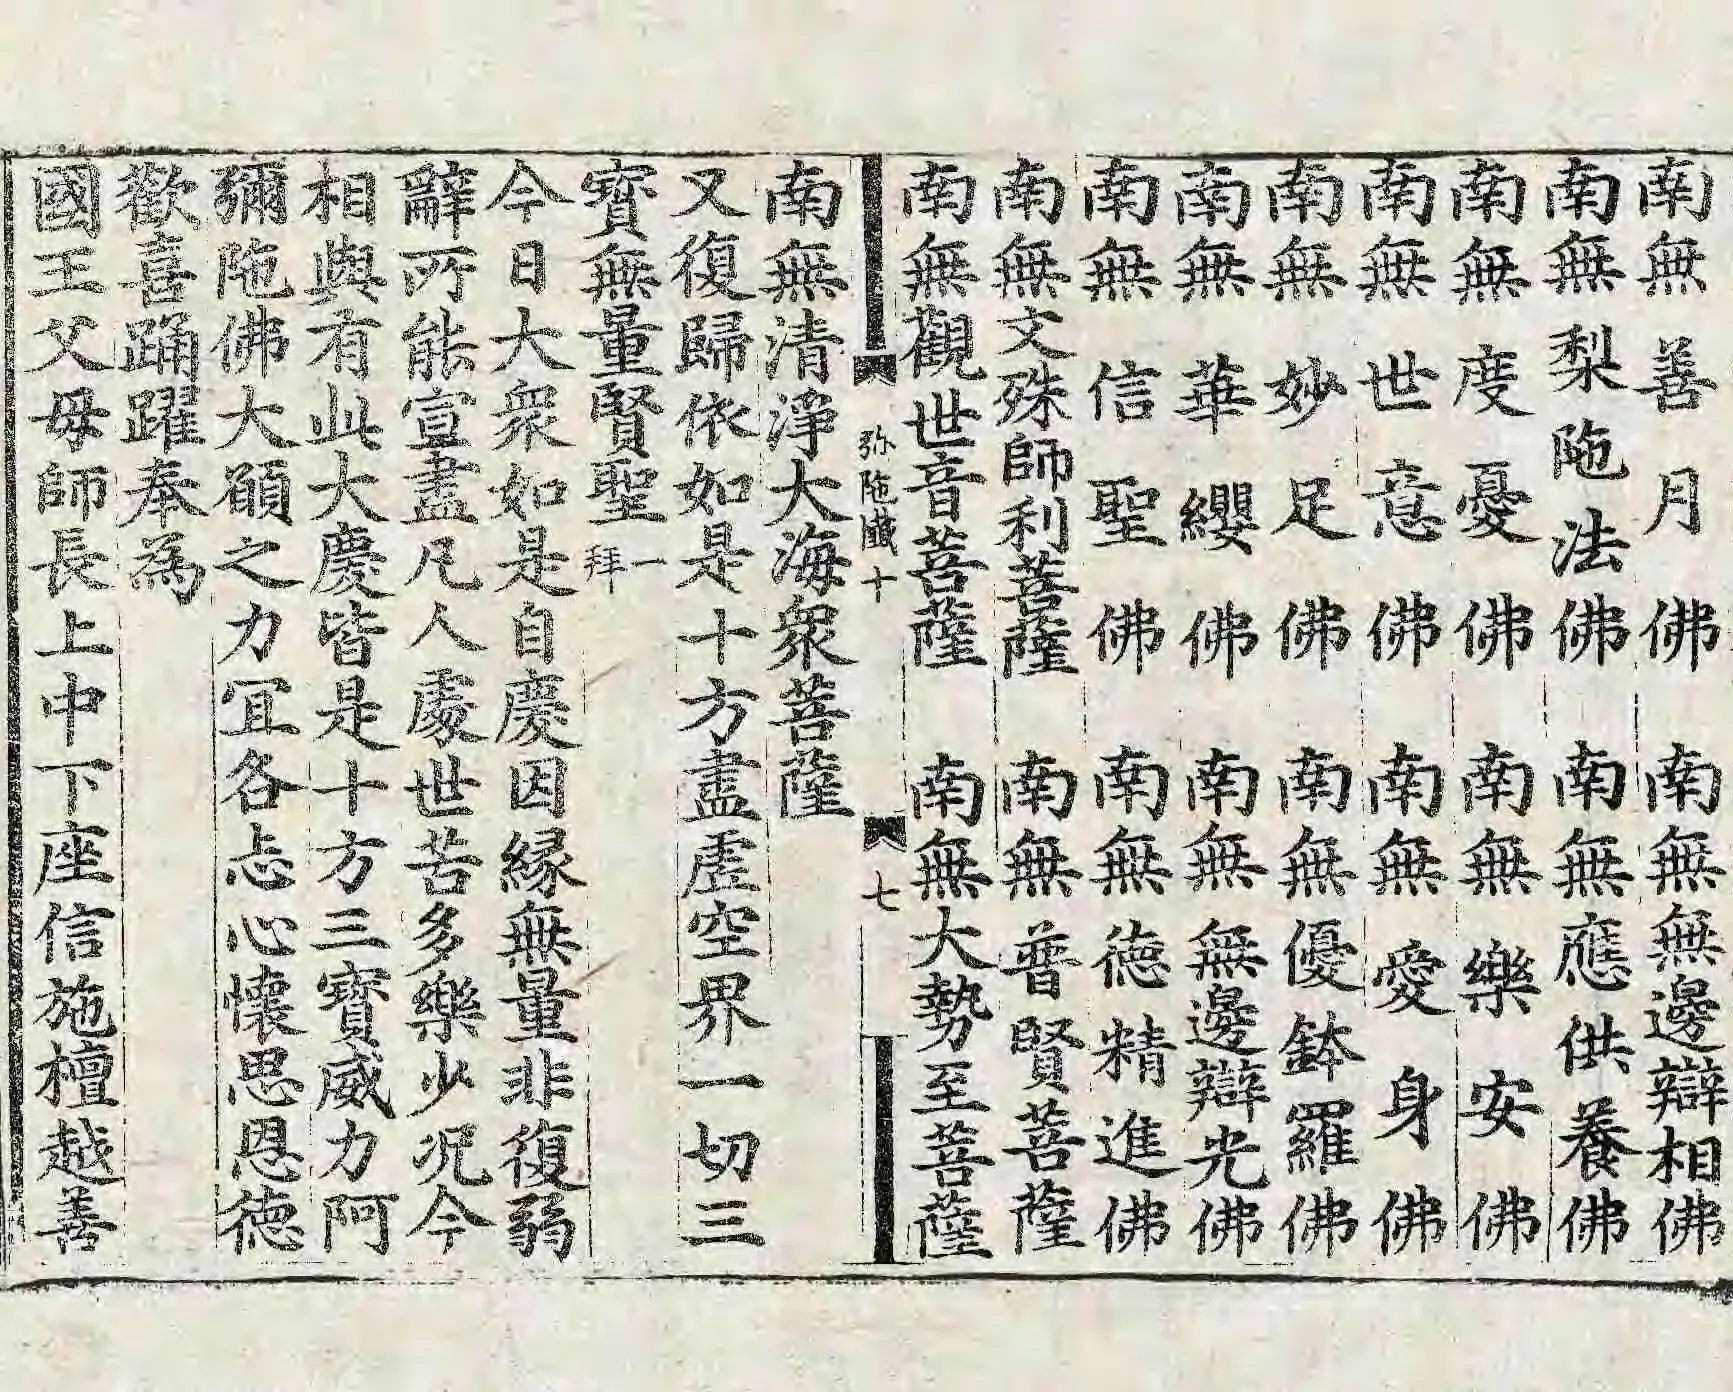 南無善月佛　南無無邊辯相佛
南無梨陁法佛　南無應供養佛
南無度憂佛　南無樂安佛
南無世意佛　南無愛身佛
南無妙足佛　南無優鉢羅佛
南無華纓佛　南無無邊辯光佛
南無信聖佛　南無德精進佛
南無文殊師利菩薩　南無普賢菩薩
南無觀世音菩薩　南無大勢至菩薩
弥陁懺十　七
南無清淨大海衆菩薩
又復歸依如是十方盡虛空界一切三
寳無量賢聖一拜
今日大衆如是自慶因縁無量非復弱
辭所能宣盡凡人處世苦多樂少况今
相與有此大慶皆是十方三寳威力阿
彌陁佛大願之力冝各忐心懷思恩德
歡喜踊躍奉為
國王父毋師長上中下座信施檀越善